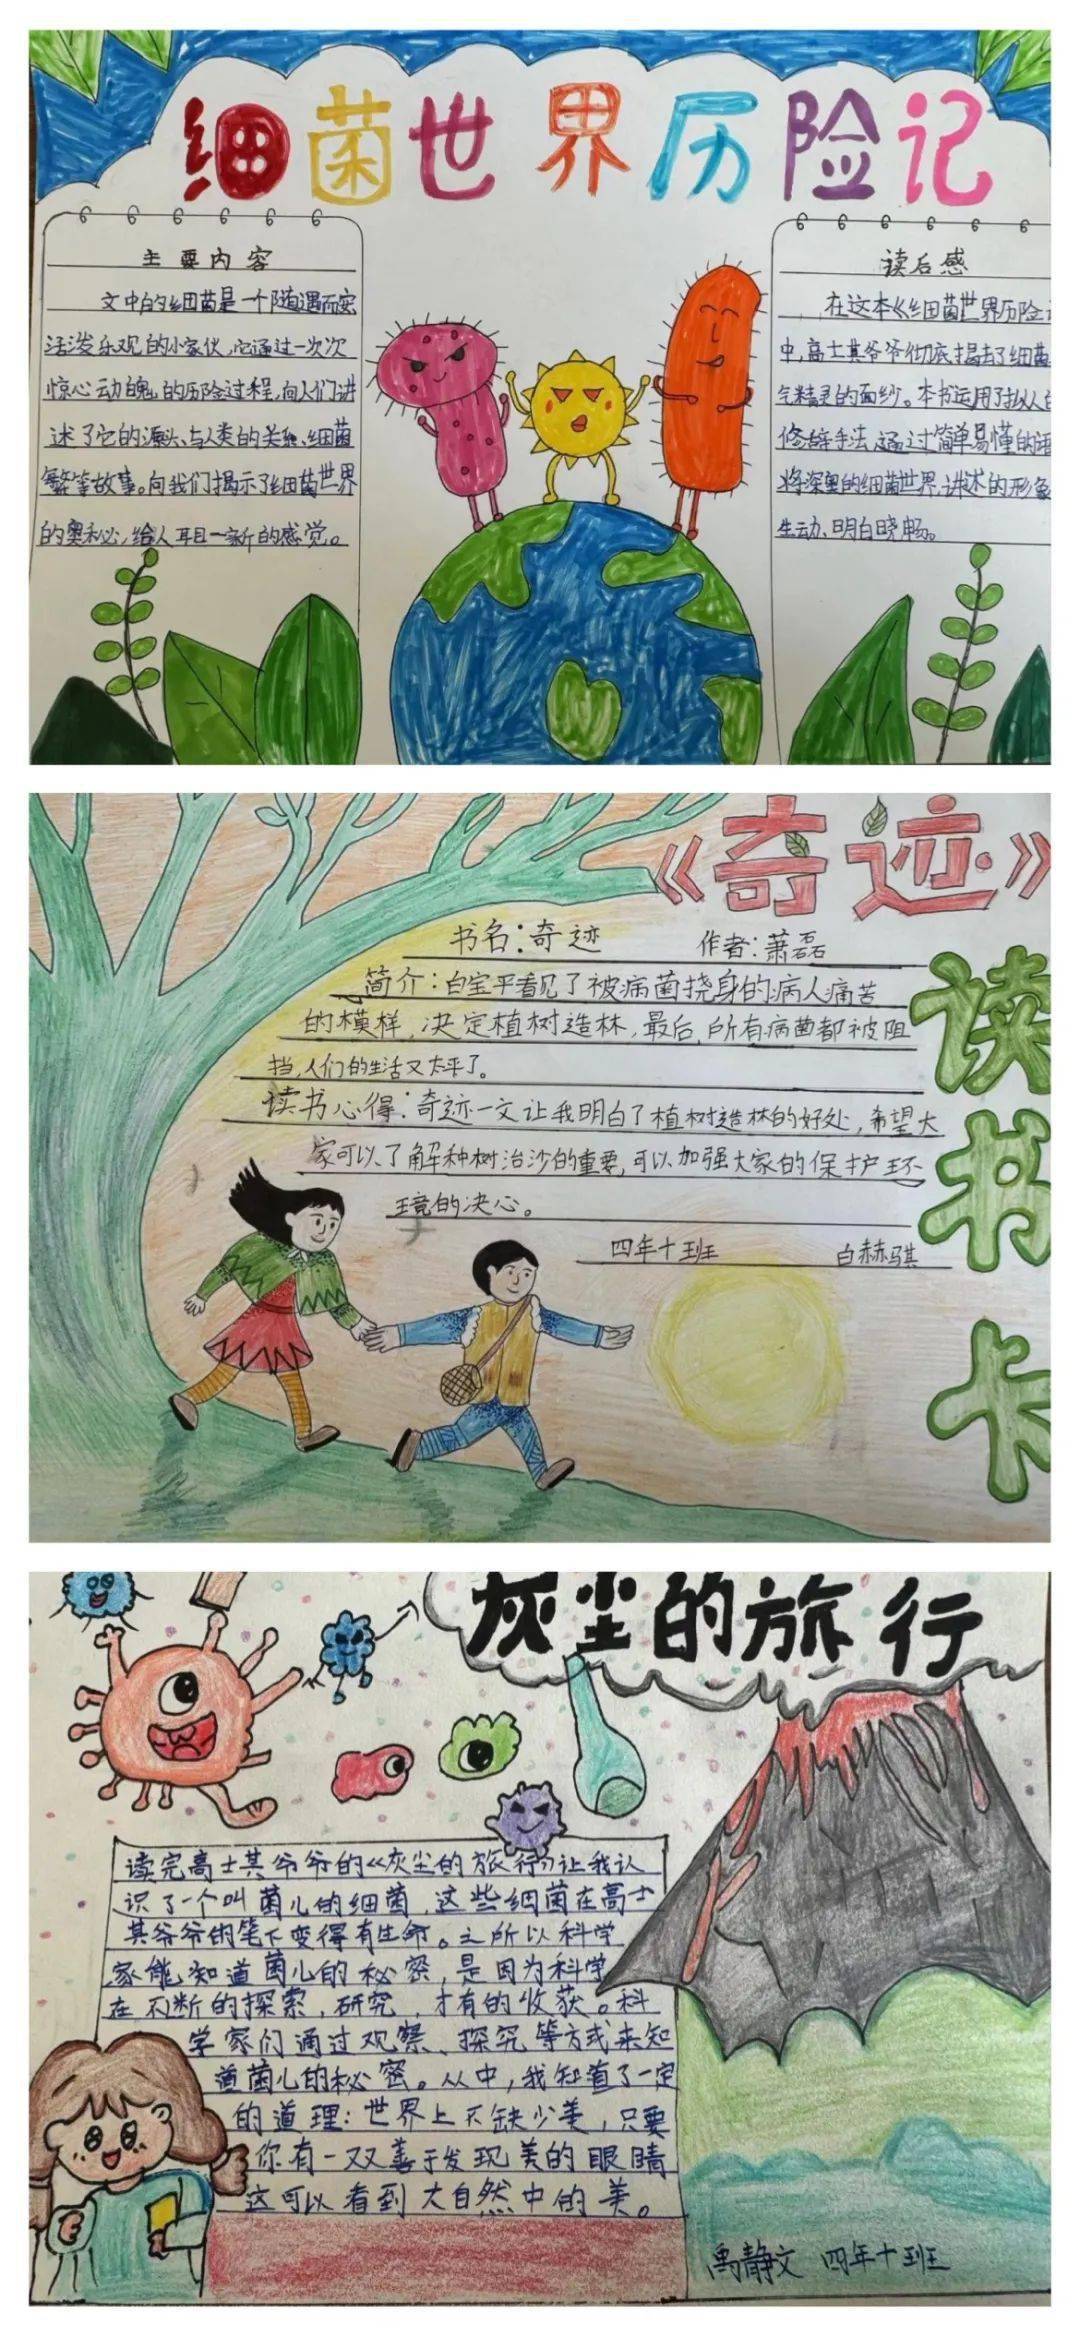 细菌世界历险记
主要内容
文中的细菌是一个随遇而安
活泼乐观的小家伙,它通过一次次
惊心动魄的历险过程,向人们讲
述了它的源头、与人类的关系、细菌
繁等故事。向我们揭示了细菌世界
的奥秘,给人耳目一新的感觉。
读后感
在这本《细菌世界历险
中,高士其爷爷彻底揭去了细菌
气精灵的面纱。本书运用了拟人
修辞手法,通过简单易懂的语
将深奥的细菌世界,讲述的形象
生动、明白晓畅。
《奇迹》
读书卡
书名:奇迹 作者:萧磊
简介:白宝平看见了被病菌挠身的病人痛苦
的模样,决定植树造林,最后,所有病菌都被阻
挡,人们的生活又太平了。
读书心得:奇迹一文让我明白了植树造林的好处,希望大
家可以了解种树治沙的重要,可以加强大家的保护环
境的决心。
四年十班 白赫骐
灰尘的旅行
读完高士其爷爷的《灰尘的旅行》让我认
识了一个叫菌儿的细菌,这些细菌在高士
其爷爷的笔下变得有生命。之所以科学
家能知道菌儿的秘密,是因为科学
在不断的探索,研究,才有的收获。科
学家们通过观察、探究等方式来知
道菌儿的秘密。从中,我知道了一定
的道理:世界上不缺少美,只要
你有一双善于发现美的眼睛
这可以看到大自然中的美。
禹静文 四年十班